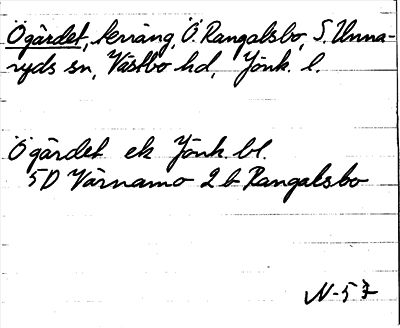 Ögärdet, terräng, Ö. Rangalsbo, S. Unna-
ryds sn, Västbo hd, Jönk. l.
Ögärdet ek Jönk. bl.
5D Värnamo 2 b Rangalsbo
N-53